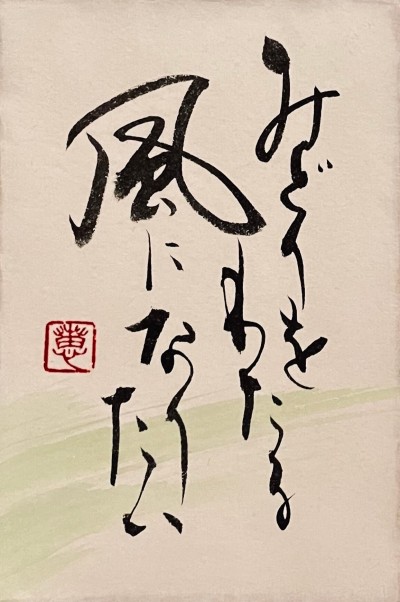 みどりを
わたる
風に
なり
たい